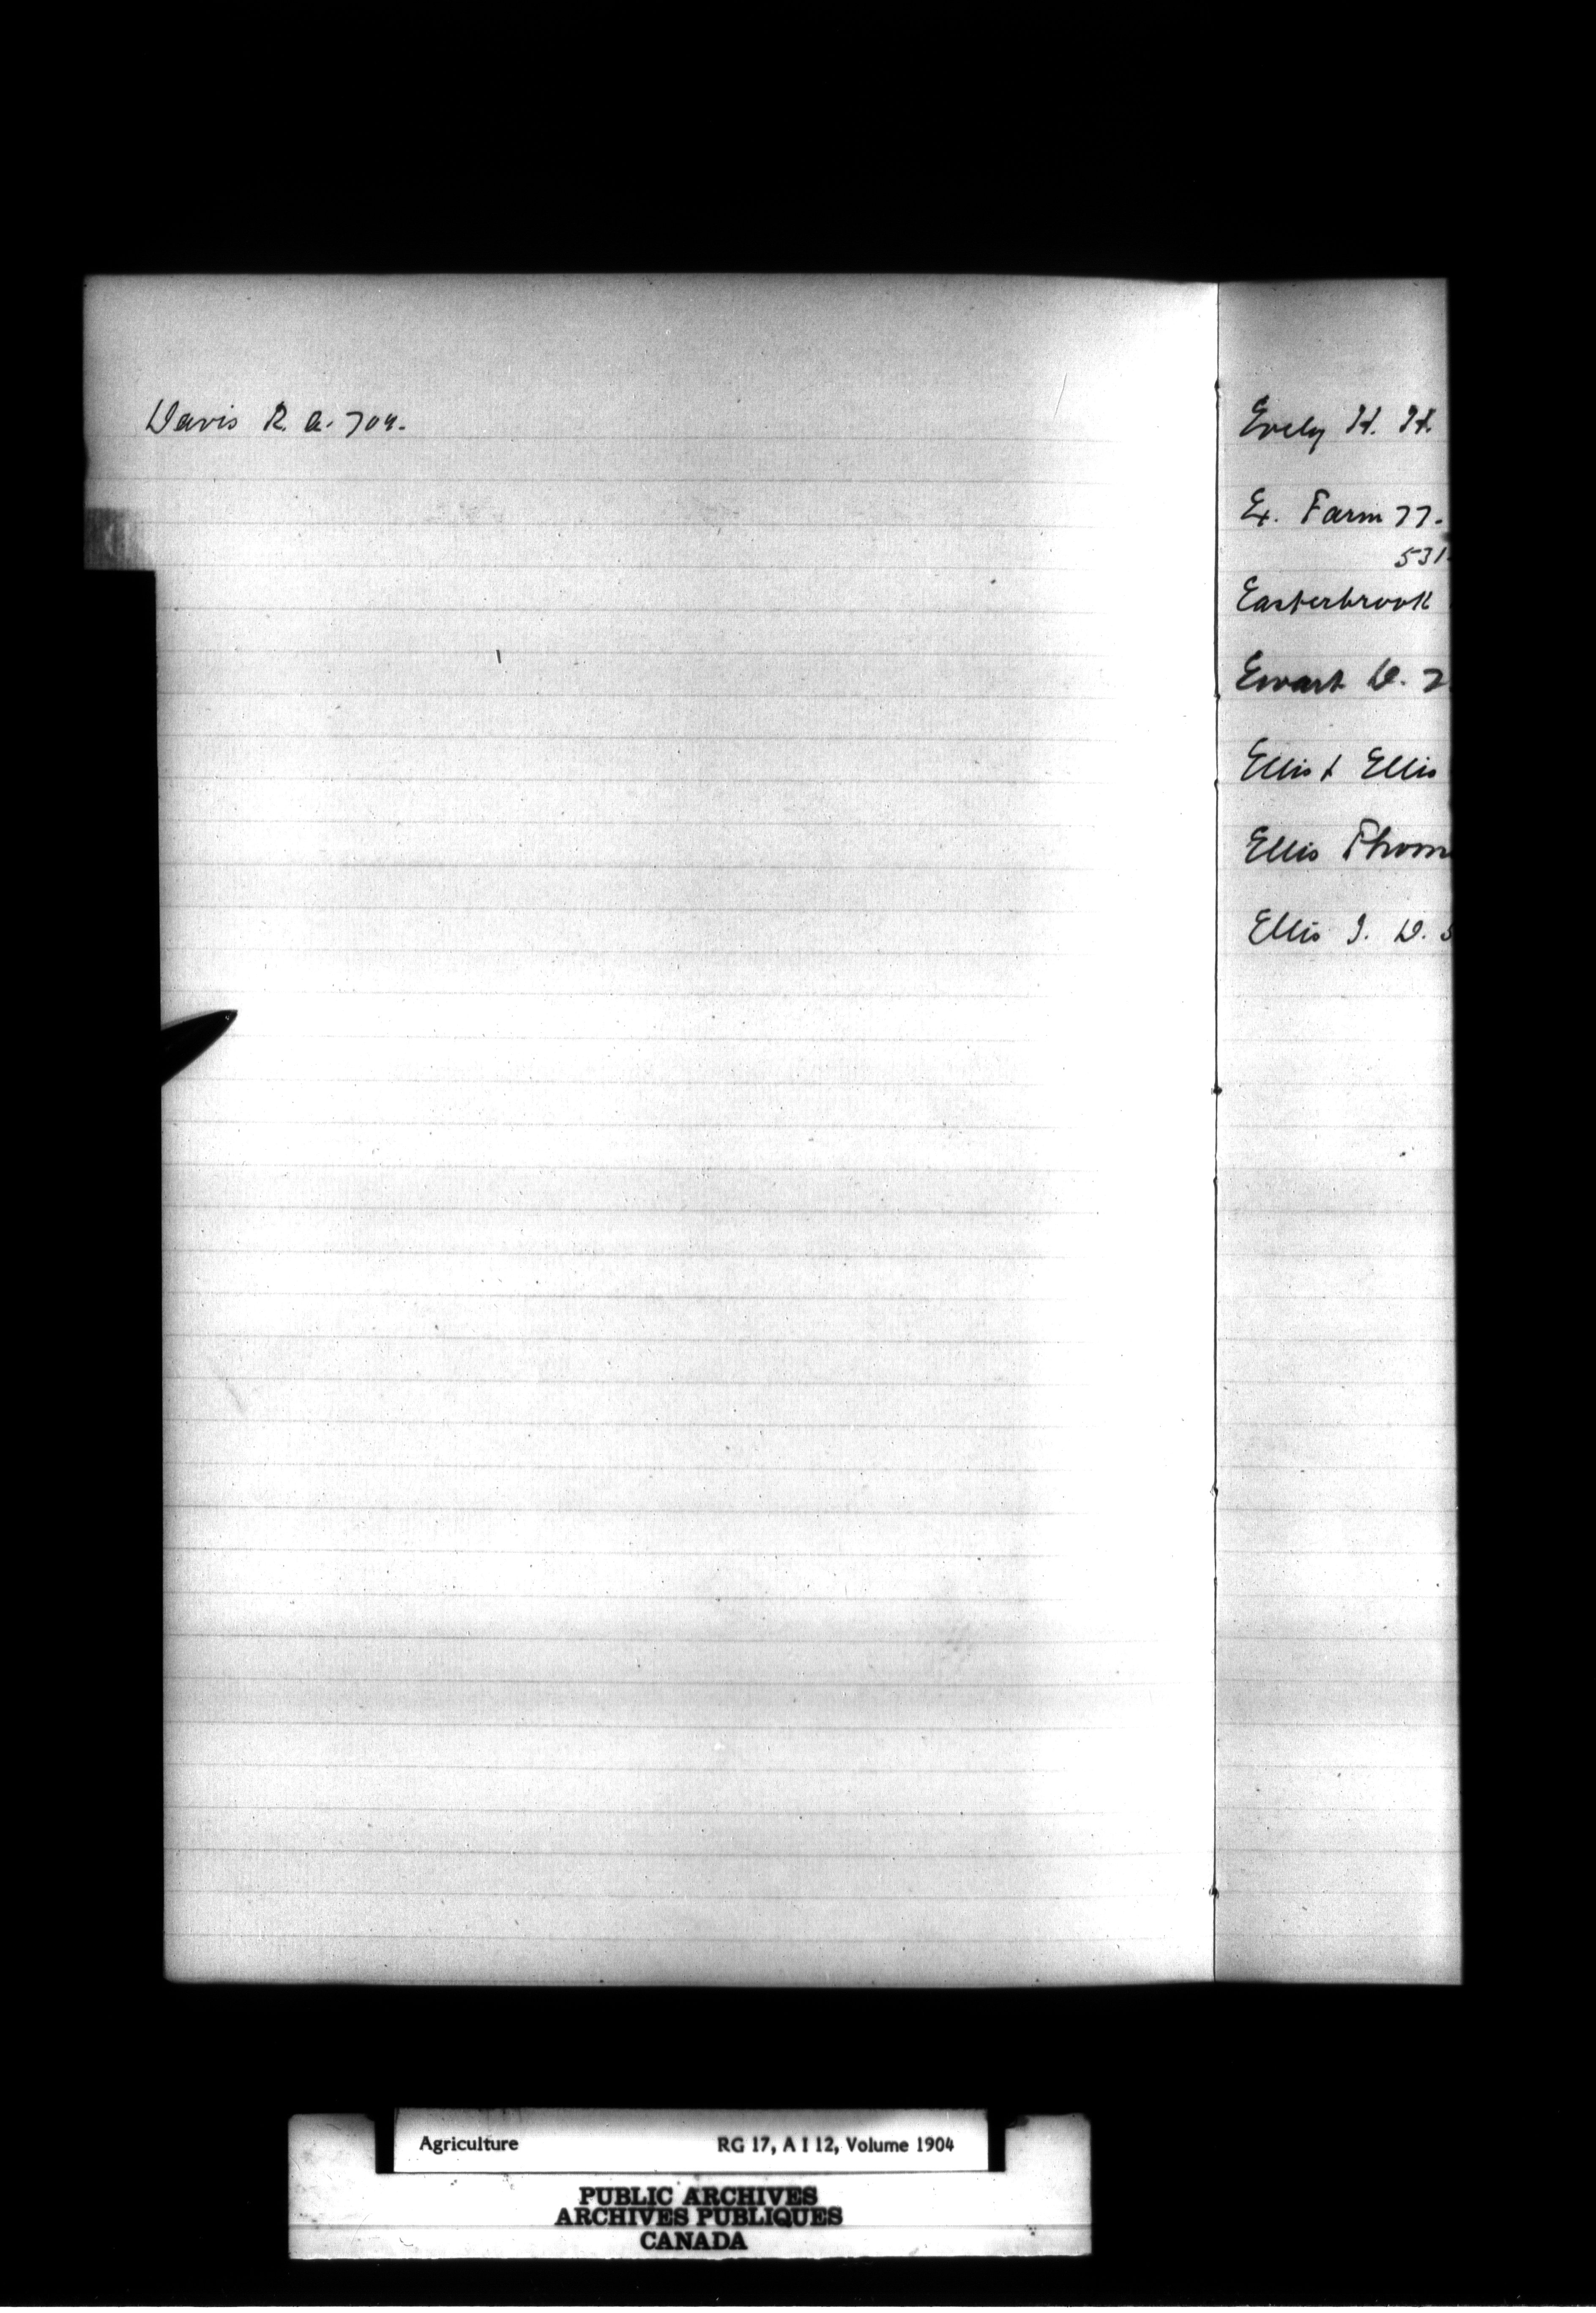 Davis R. A. 704.
Evely H. H.
Ex. Farm 77.
531
Easterbrook
Ewart D. 2
Ellis & Ellis
Ellis Thom
Ellis J. D.
Agriculture RG 17, A I 12, Volume 1904
PUBLIC ARCHIVES
ARCHIVES PUBLIQUES
CANADA